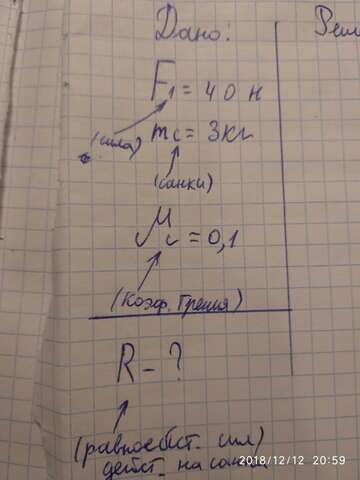 Дано:
Реш
F₁ = 40 н
(сила)
mc = 3кг
(санки)
Mc = 0,1
(Коэф. Трения)
R - ?
(равнодейст. сил)
дейст. на санки
2018/12/12 20:59